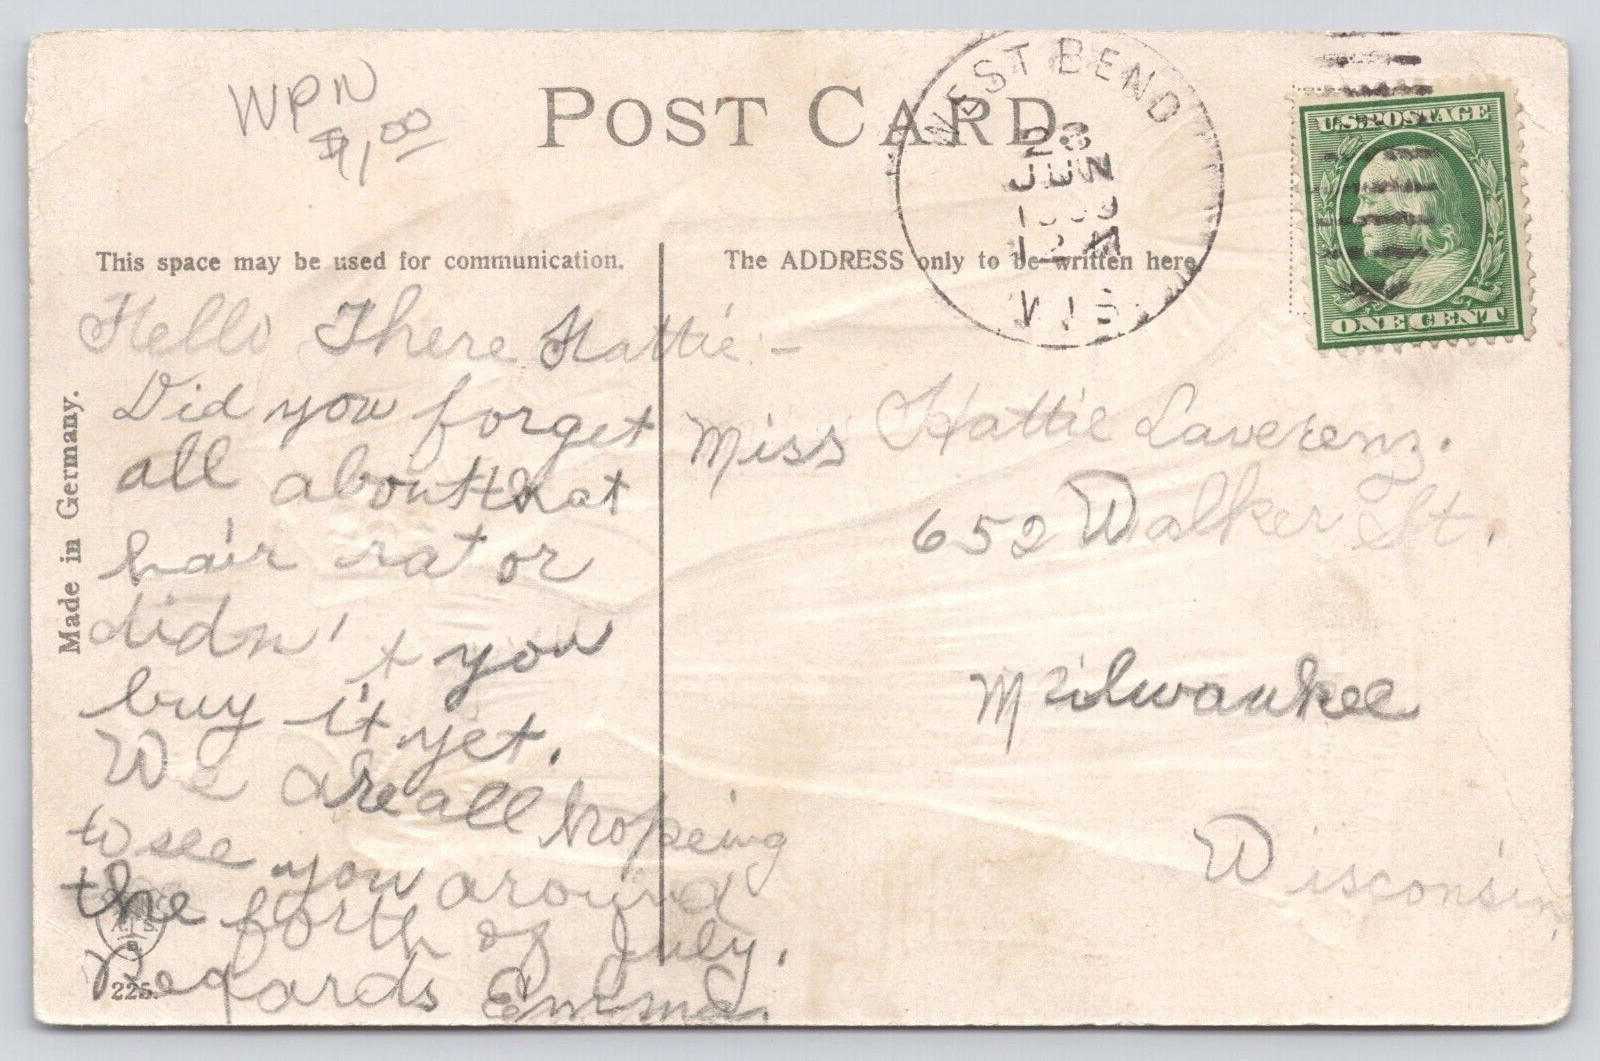 WPN
$1,00
POST CARD
WEST BEND
28
JUN
1909
WIS
U.S. POSTAGE
ONE CENT
This space may be used for communication.
The ADDRESS only to be written here.
Made in Germany.
Hello There Hattie -
Did you forget
all about that
hair rat or
didn't you
buy it yet.
We are all hopeing
to see you around
the forth of July.
Regards Emma.
225.
Miss Hattie Laverenz.
652 Walker St.
Milwaukee
Wisconsin